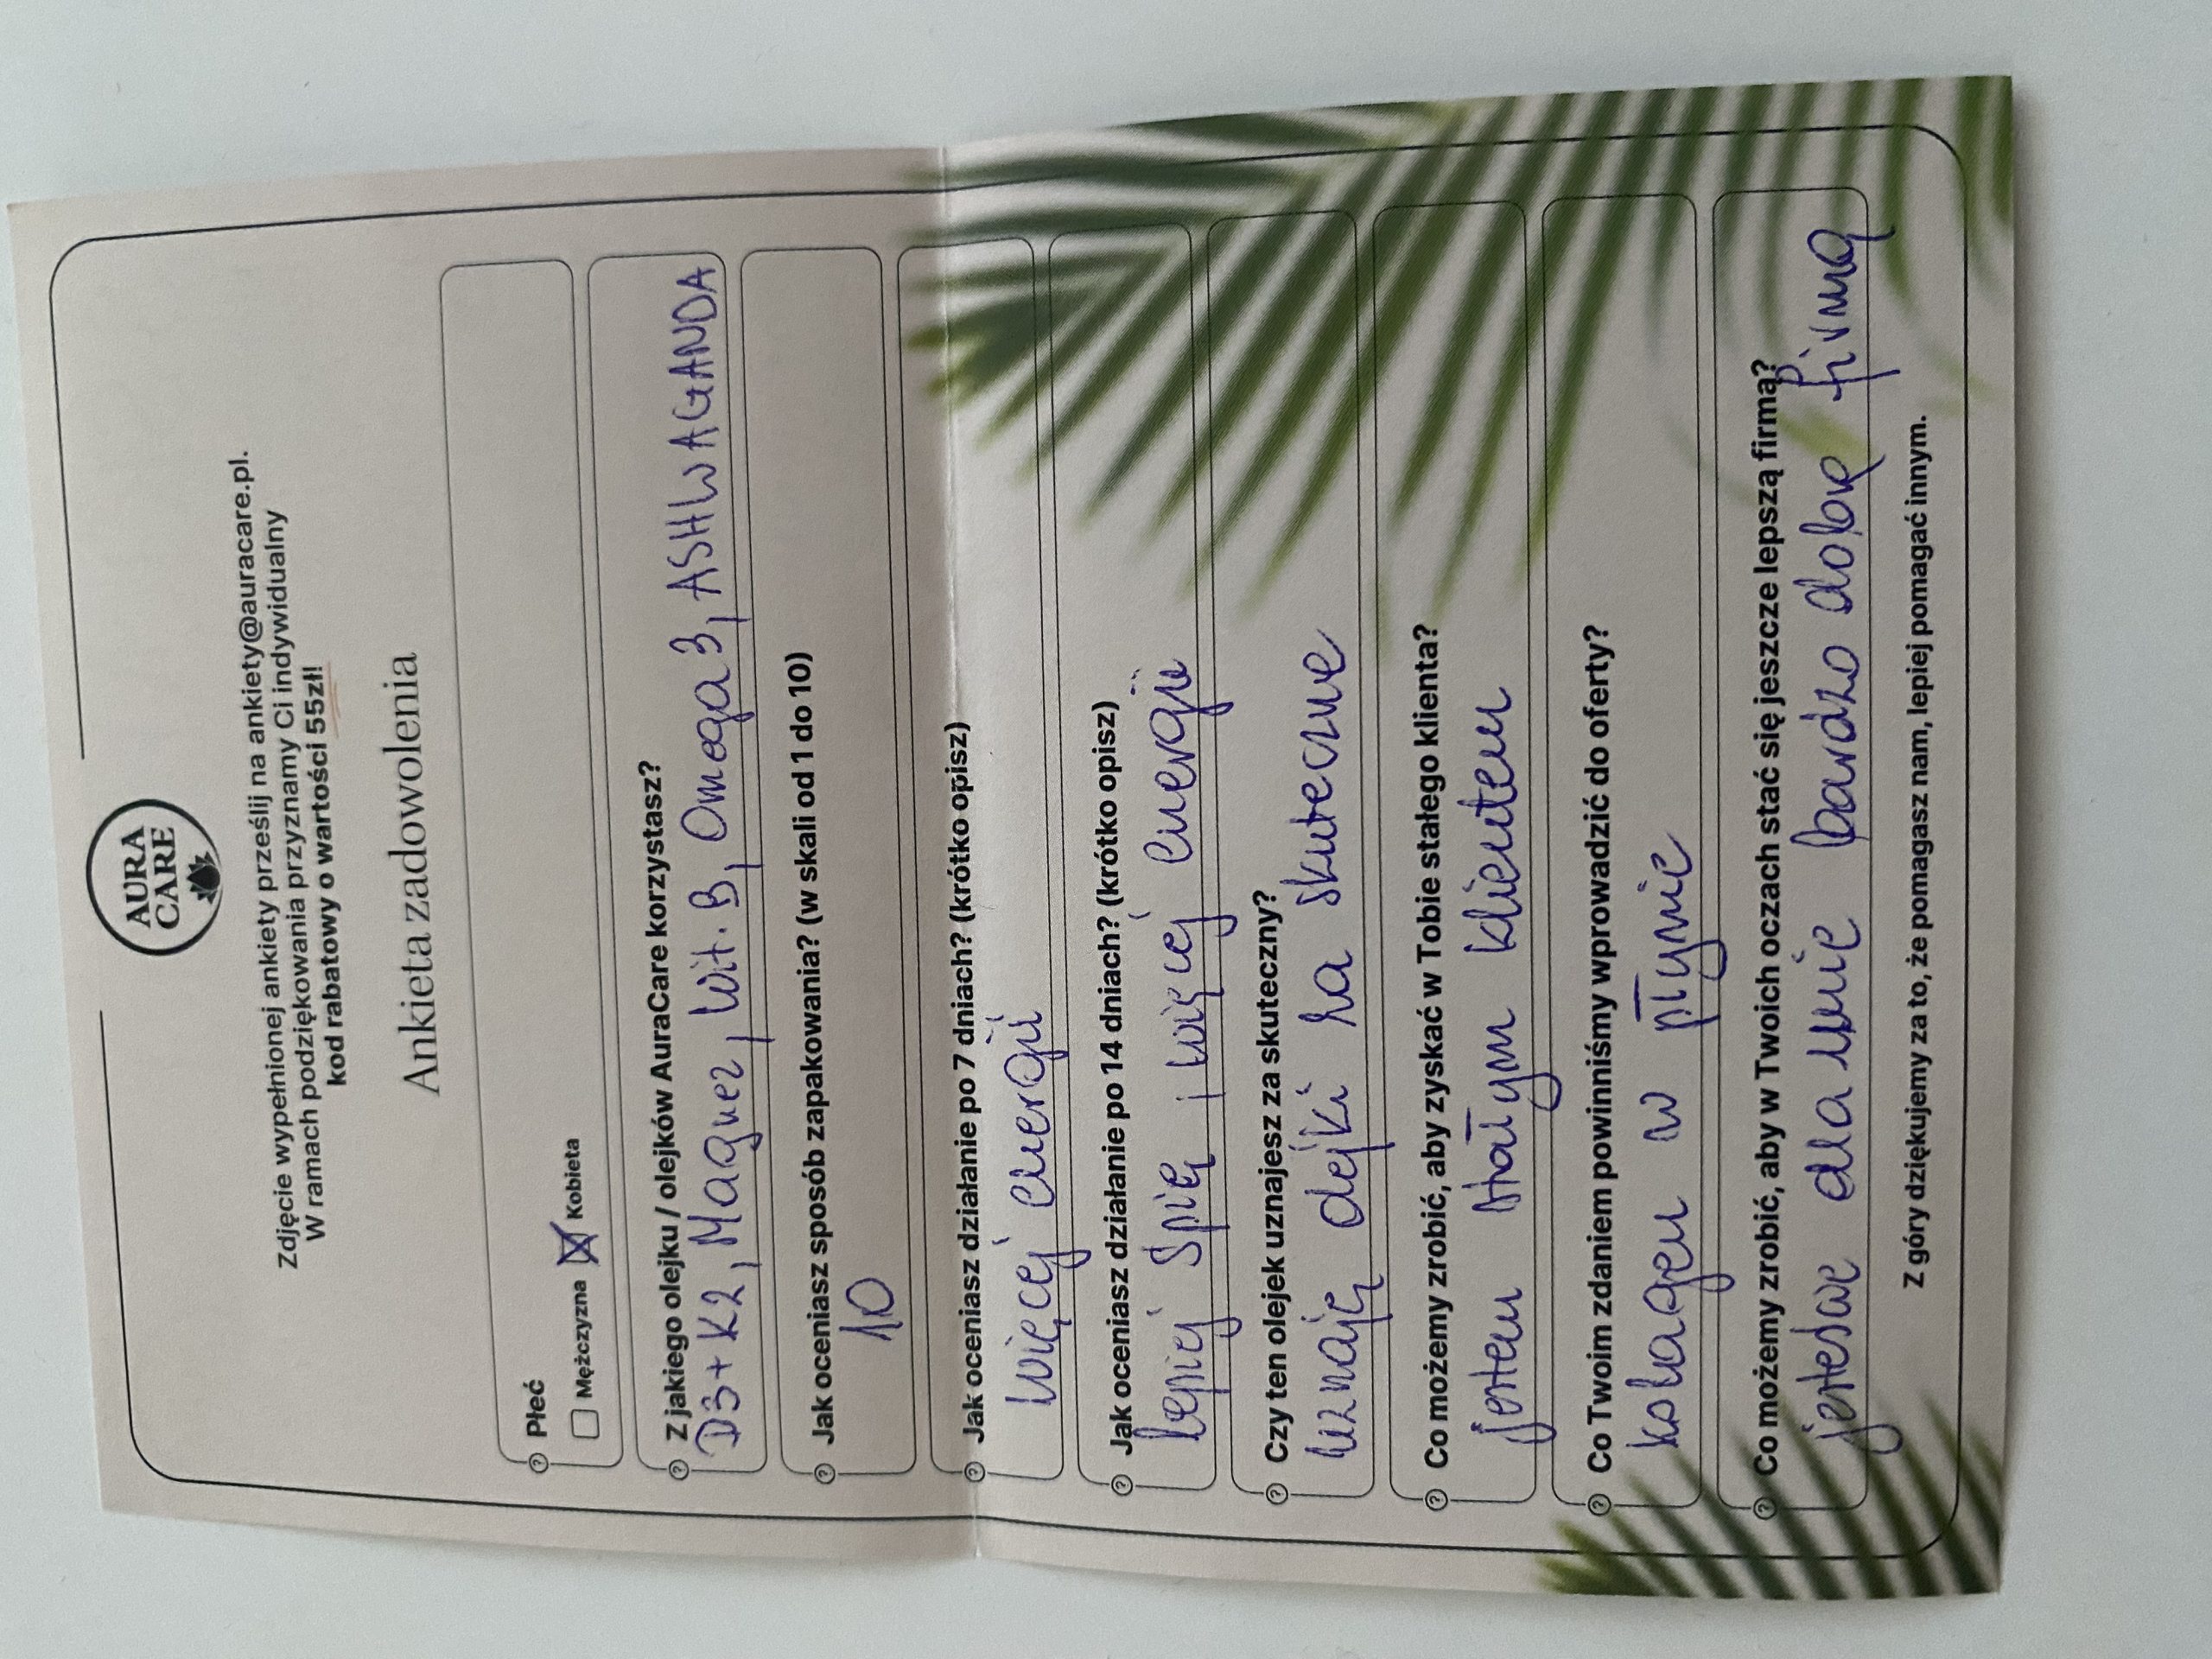 AURA
CARE
Zdjęcie wypełnionej ankiety prześlij na ankiety@auracare.pl.
W ramach podziękowania przyznamy Ci indywidualny
kod rabatowy o wartości 55zł!
Ankieta zadowolenia
Płeć
Mężczyzna Kobieta
Z jakiego olejku / olejków AuraCare korzystasz?
D3+K2, Magnez, Wit. B, Omega 3, ASHWAGANDA
Jak oceniasz sposób zapakowania? (w skali od 1 do 10)
10
Jak oceniasz działanie po 7 dniach? (krótko opisz)
więcej energii
Jak oceniasz działanie po 14 dniach? (krótko opisz)
lepiej śpię i więcej energii
Czy ten olejek uznajesz za skuteczny?
uznaję olejki za skuteczne
Co możemy zrobić, aby zyskać w Tobie stałego klienta?
jestem stałym klientem
Co Twoim zdaniem powinniśmy wprowadzić do oferty?
kolagen w płynie
Co możemy zrobić, aby w Twoich oczach stać się jeszcze lepszą firmą?
jesteście dla mnie bardzo dobrą firmą
Z góry dziękujemy za to, że pomagasz nam, lepiej pomagać innym.